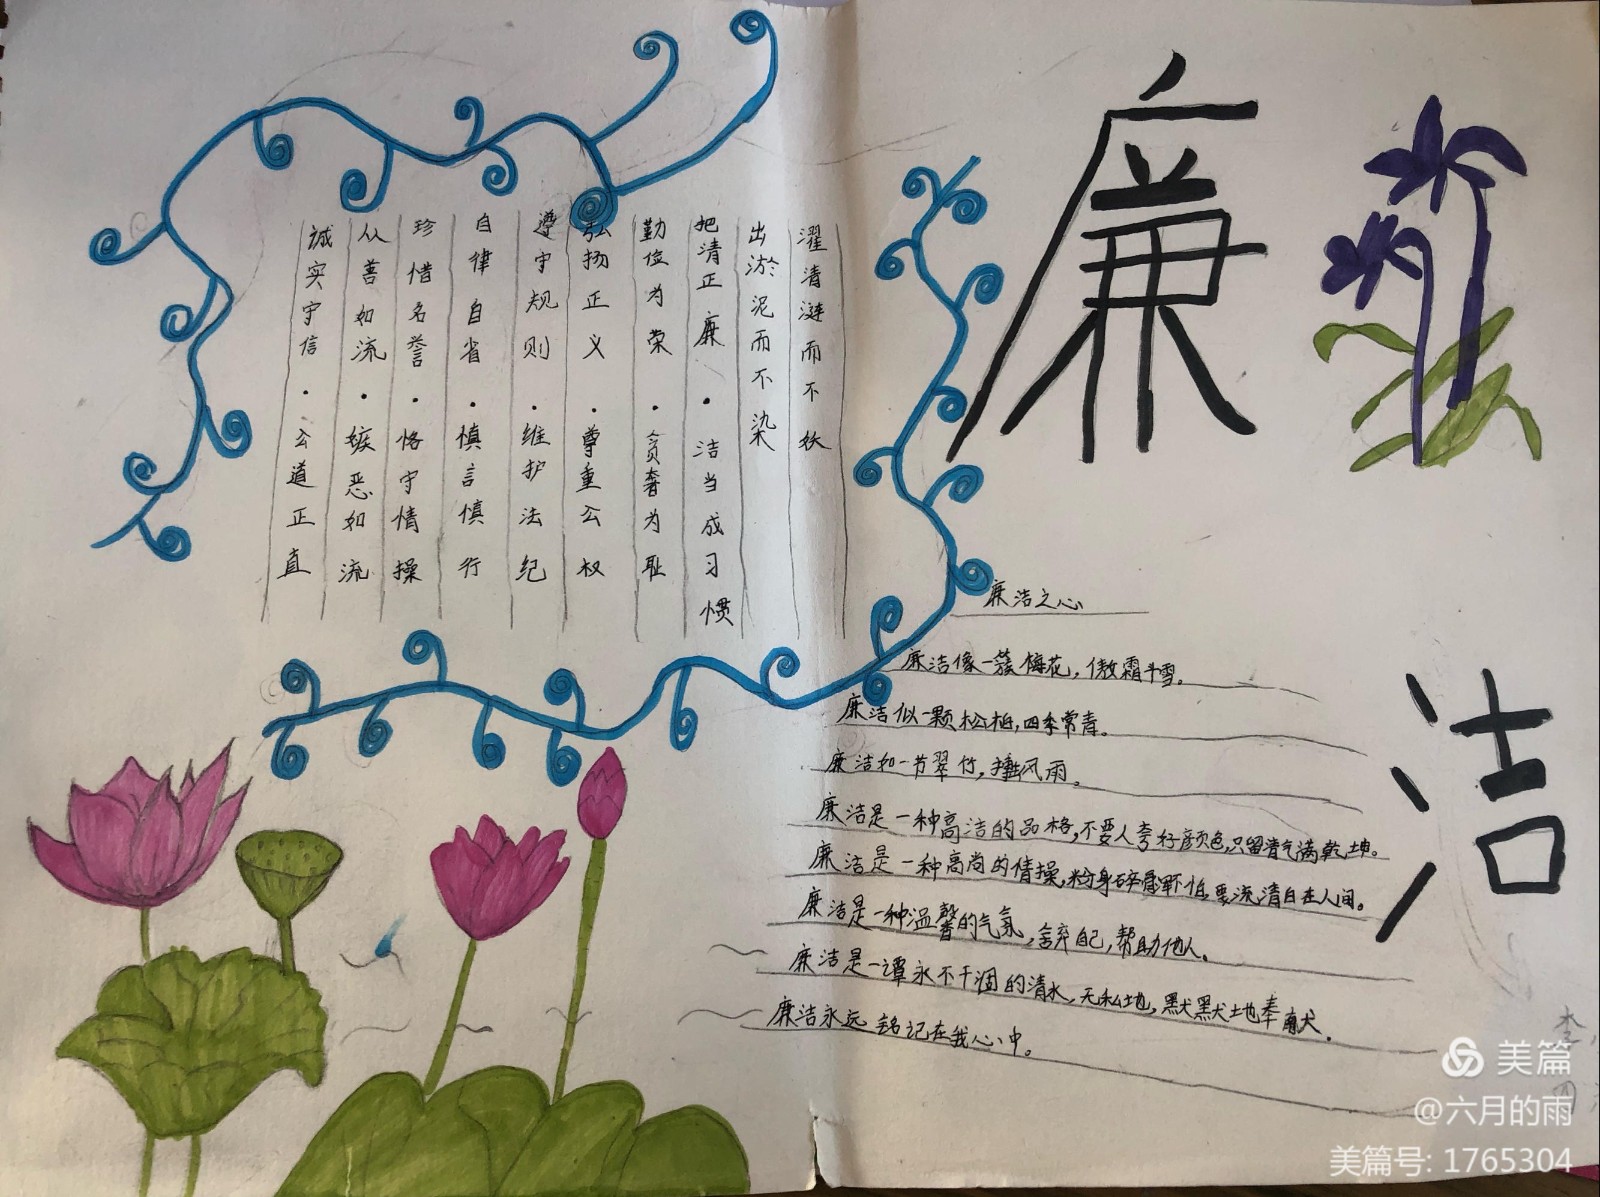 廉
洁
濯清涟而不妖
出淤泥而不染
把清正廉·洁当成习惯
勤俭为荣·贪奢为耻
弘扬正义·尊重公权
遵守规则·维护法纪
自律自省·慎言慎行
珍惜名誉·恪守情操
从善如流·嫉恶如流
诚实守信·公道正直
廉洁之心
廉洁像一簇梅花，傲霜斗雪。
廉洁似一颗松柏，四季常青。
廉洁如一节翠竹，搏风雨。
廉洁是一种高洁的品格，不要人夸好颜色，只留清气满乾坤。
廉洁是一种高尚的情操，粉身碎骨浑不怕，要流清白在人间。
廉洁是一种温馨的气氛，舍弃自己，帮助他人。
廉洁是一谭永不干涸的清水，无私地，默默地奉献。
廉洁永远铭记在我心中。
美篇
@六月的雨
美篇号: 1765304